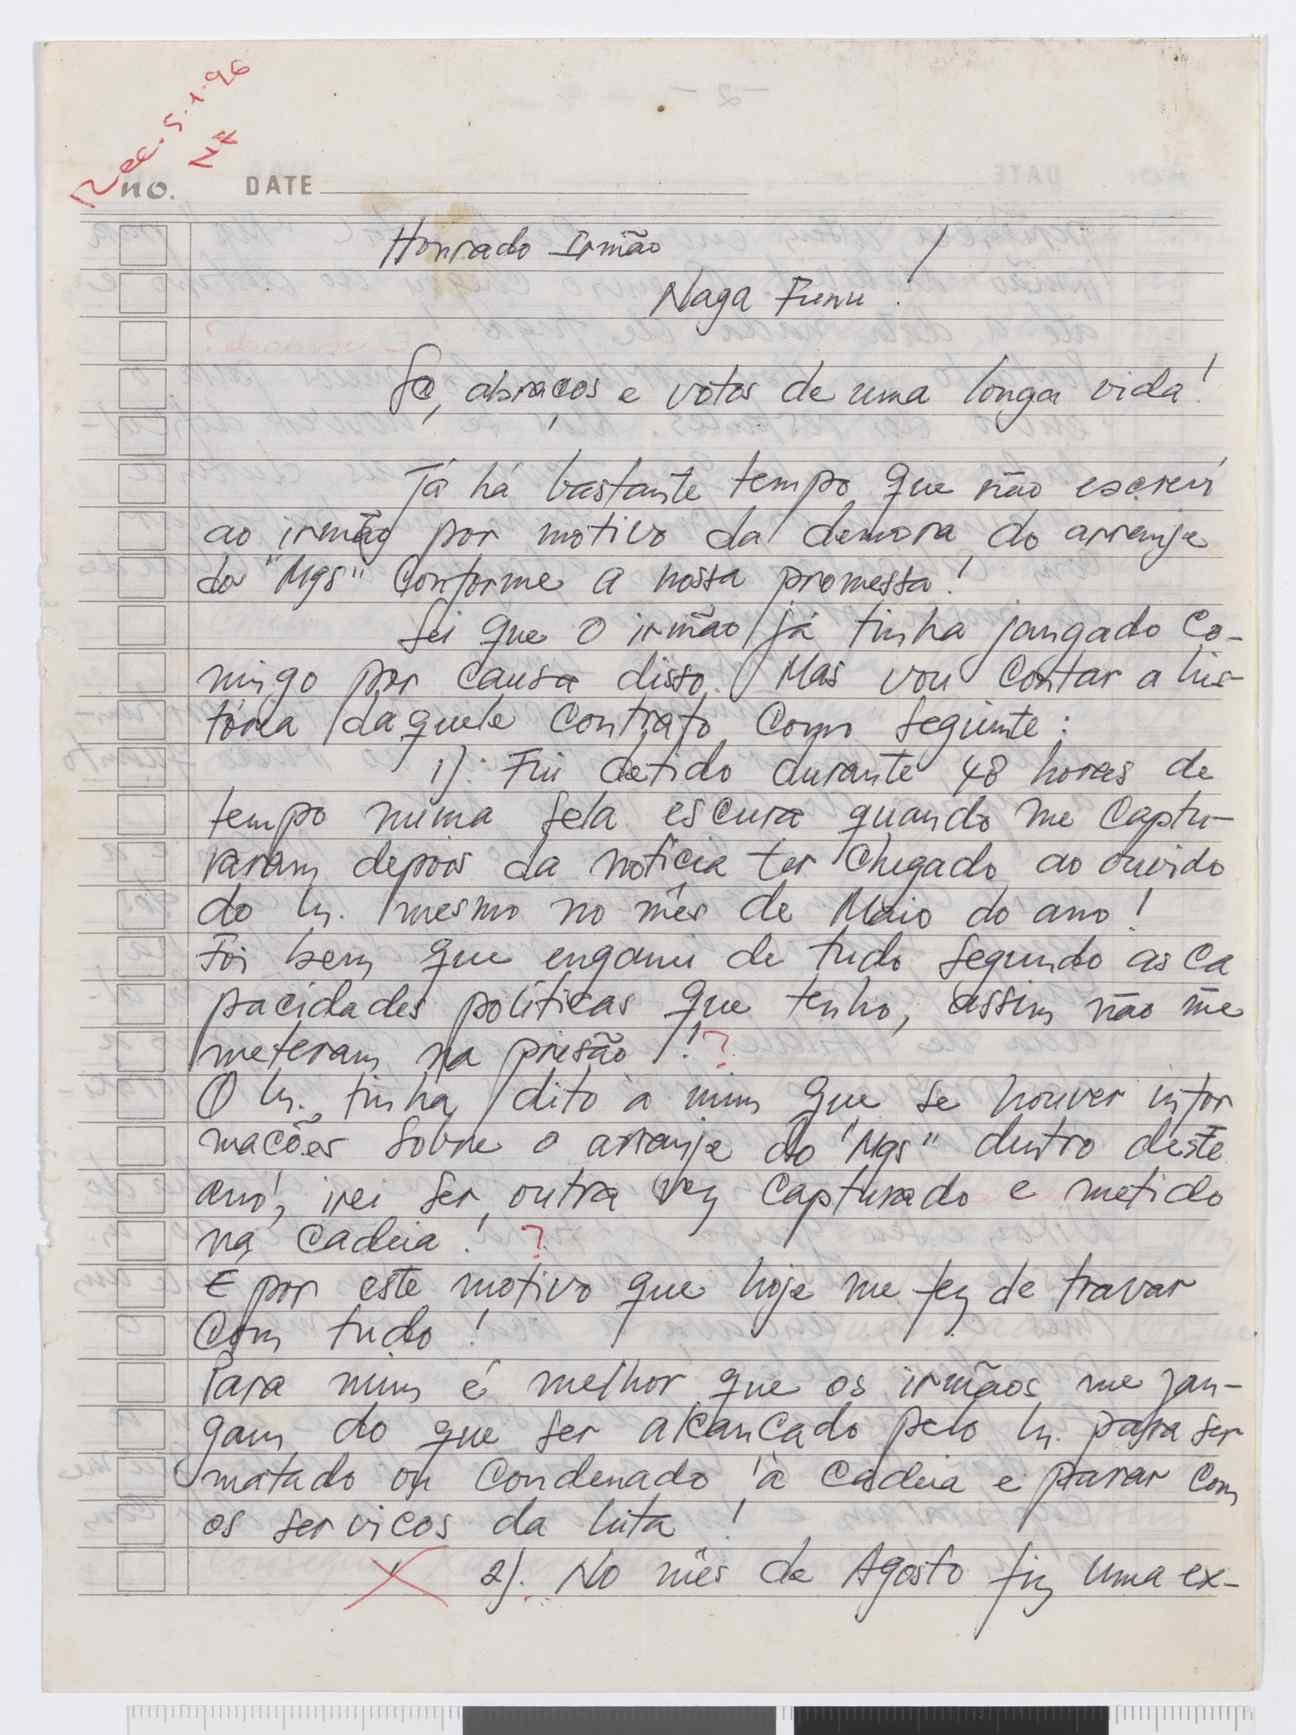 Rec. 5.1.96
NF
no. DATE
Honrado Irmão
Naga Funu !
Sa, abraços e votos de uma longa vida!
Já há bastante tempo que não escrevi
ao irmão por motivo da demora do arranje
do "Mgs" Conforme a nossa promessa!
Sei que o irmão já tinha jangado Co-
migo por causa disso. Mas vou Contar a his-
tória daquele Contrato Como seguinte:
1). Fui detido durante 48 horas de
tempo numa sela escura quando me Captu-
raram depois da notícia ter chegado ao ouvido
do In. mesmo no mês de Maio do ano!
Foi bem que enganei de tudo segundo as Ca
pacidades políticas que tenho, assim não me
meteram na prisão! ?
O In. tinha dito à mim que se houver infor
mações sobre o arranje do "Mgs" dentro deste
ano, irei ser outra vez Capturado e metido
na Cadeia! ?
E por este motivo que hoje me fez de travar
Com tudo!
Para mim é melhor que os irmãos me jan-
gam do que ser alcançado pelo In. para ser
matado ou Condenado à Cadeia e parar Com
os serviços da luta!
2). No mês de Agosto fiz uma ex-